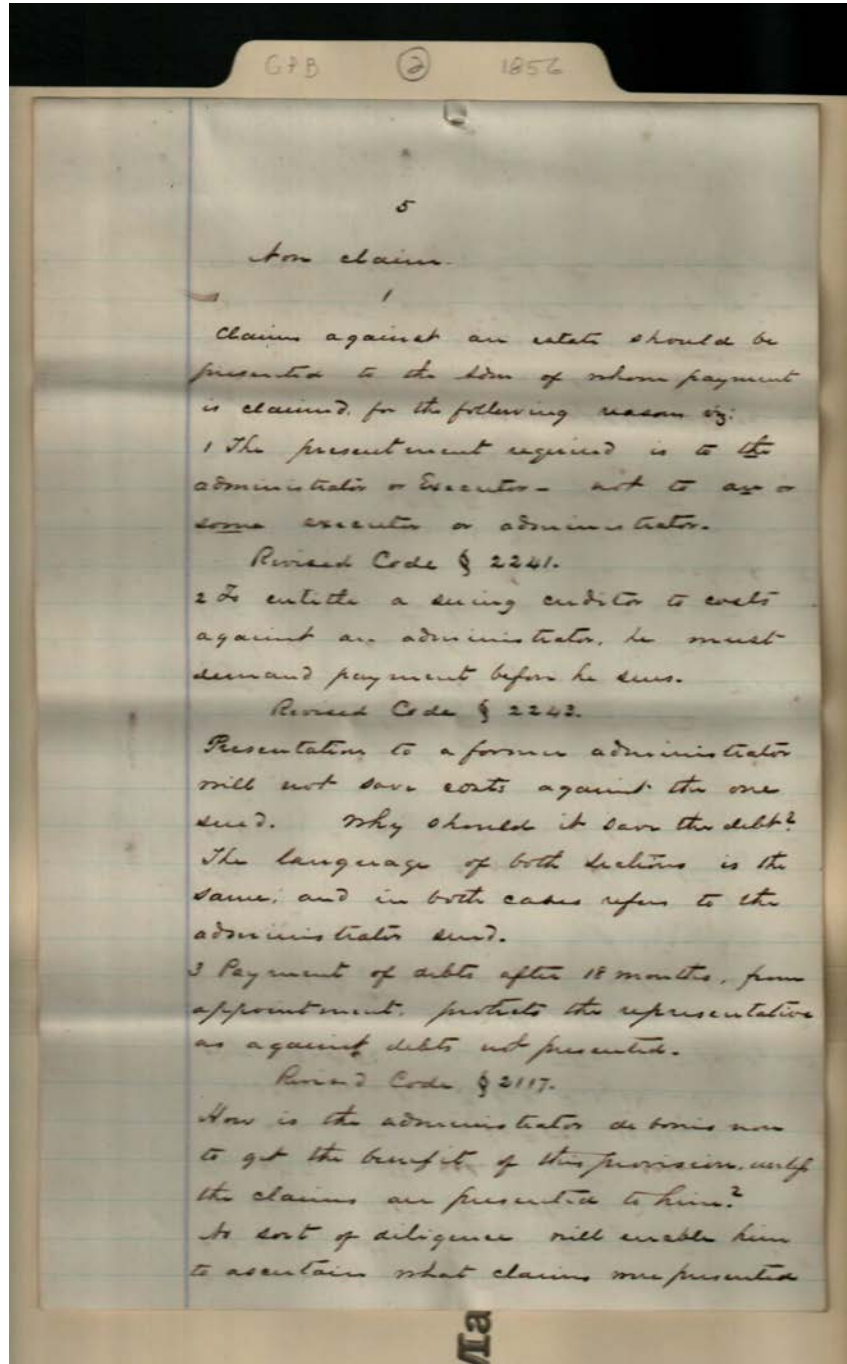 GPB 2 1856
5
Non claim.
1
Claims against an estate should be
presented to the Adm of whom payment
is claimed, for the following reasons viz:
1 The presentment required is to the
administrator or Executor - not to an or
some executor or administrator.
Revised Code § 2241.
2 To entitle a suing creditor to costs
against an administrator, he must
demand payment before he sues.
Revised Code § 2243.
Presentation to a former administrator
will not save costs against the one
sued. Why should it save the debt?
The language of both sections is the
same; and in both cases refers to the
administrator sued.
3 Payment of debts after 18 months, from
appointment, protects the representative
as against debts not presented.
Revised Code § 2117.
How is the administrator de bonis non
to get the benefit of this provision, unless
the claims are presented to him?
No sort of diligence will enable him
to ascertain what claims were presented